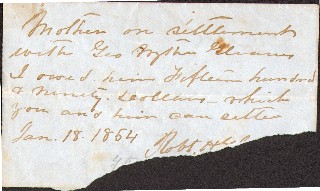 Mother on settlement
with Geo Wythe
I owed him Fifteen hundred
& ninety dollars which
you and him can settle
Jan. 18. 1864
Robt.